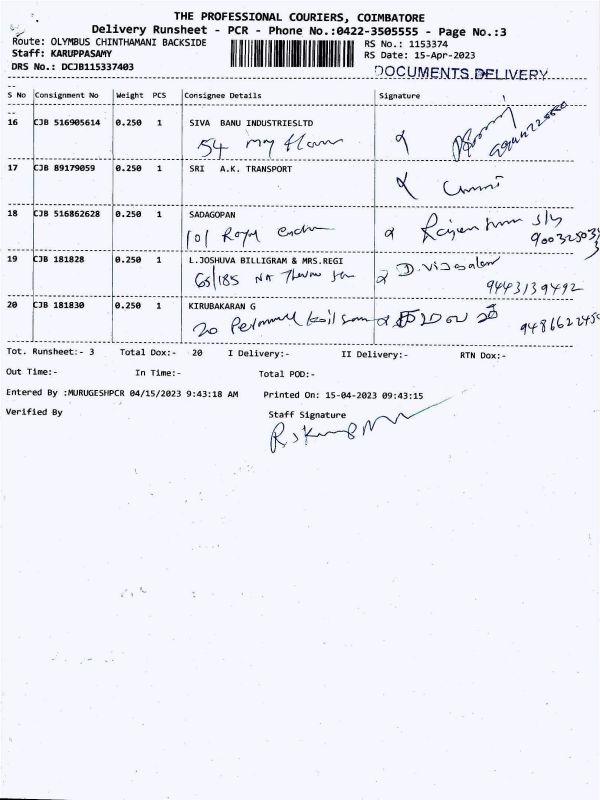 THE PROFESSIONAL COURIERS, COIMBATORE
Delivery Runsheet - PCR - Phone No.:0422-3505555 - Page No.:3
Route: OLYMBUS CHINTHAMANI BACKSIDE
RS No.: 1153374
Staff: KARUPPASAMY
RS Date: 15-Apr-2023
DRS No.: DCJB115337403
DOCUMENTS DELIVERY
S No Consignment No Weight PCS Consignee Details Signature
16 CJB 516905614 0.250 1 SIVA BANU INDUSTRIESLTD
54 may flower
17 CJB 89179059 0.250 1 SRI A.K. TRANSPORT
18 CJB 516862628 0.250 1 SADAGOPAN
101 Royal
19 CJB 181828 0.250 1 L.JOSHUVA BILLIGRAM & MRS.REGI
65/185
9443139492
20 CJB 181830 0.250 1 KIRUBAKARAN G
20
Tot. Runsheet:- 3 Total Dox:- 20 I Delivery:- II Delivery:- RTN Dox:-
Out Time:- In Time:- Total POD:-
Entered By :MURUGESHPCR 04/15/2023 9:43:18 AM Printed On: 15-04-2023 09:43:15
Verified By Staff Signature